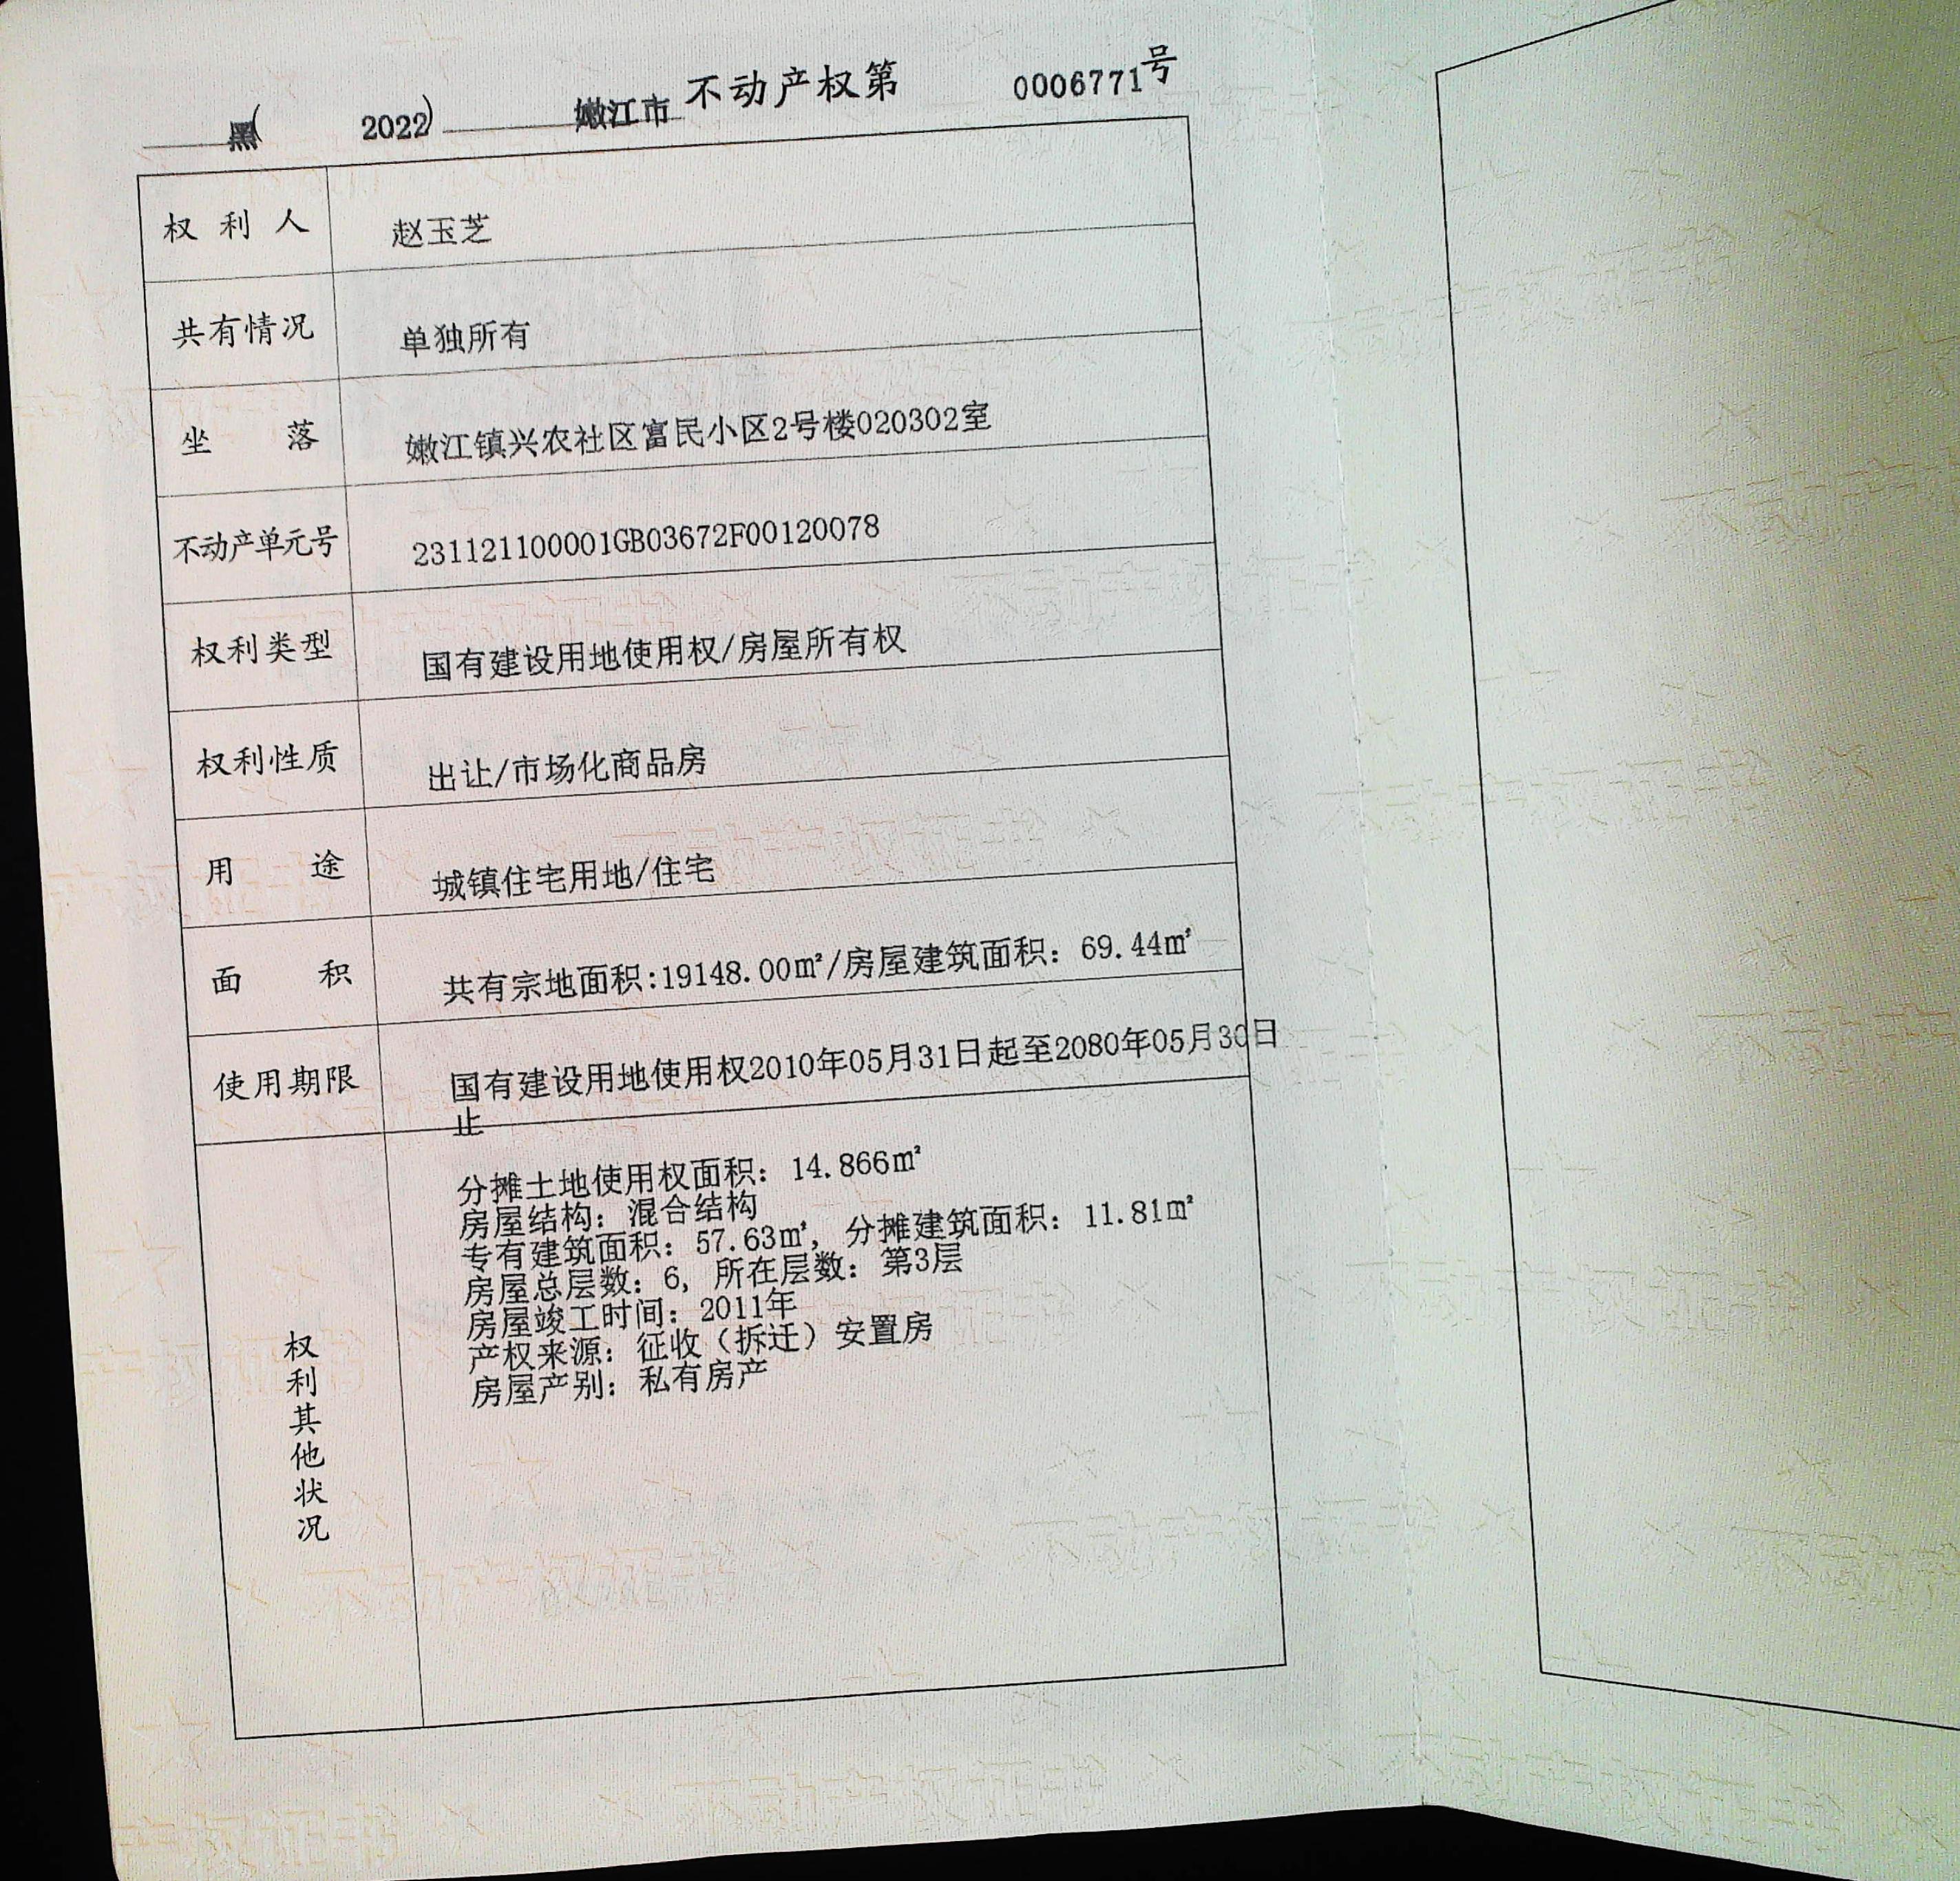 黑(2022)嫩江市不动产权第0006771号
权利人 赵玉芝
共有情况 单独所有
坐落 嫩江镇兴农社区富民小区2号楼020302室
不动产单元号 231121100001GB03672F00120078
权利类型 国有建设用地使用权/房屋所有权
权利性质 出让/市场化商品房
用途 城镇住宅用地/住宅
面积 共有宗地面积:19148.00㎡/房屋建筑面积：69.44㎡
使用期限 国有建设用地使用权2010年05月31日起至2080年05月30日
止
权利其他状况
分摊土地使用权面积：14.866㎡
房屋结构：混合结构
专有建筑面积：57.63㎡，分摊建筑面积：11.81㎡
房屋总层数：6，所在层数：第3层
房屋竣工时间：2011年
产权来源：征收（拆迁）安置房
房屋产别：私有房产